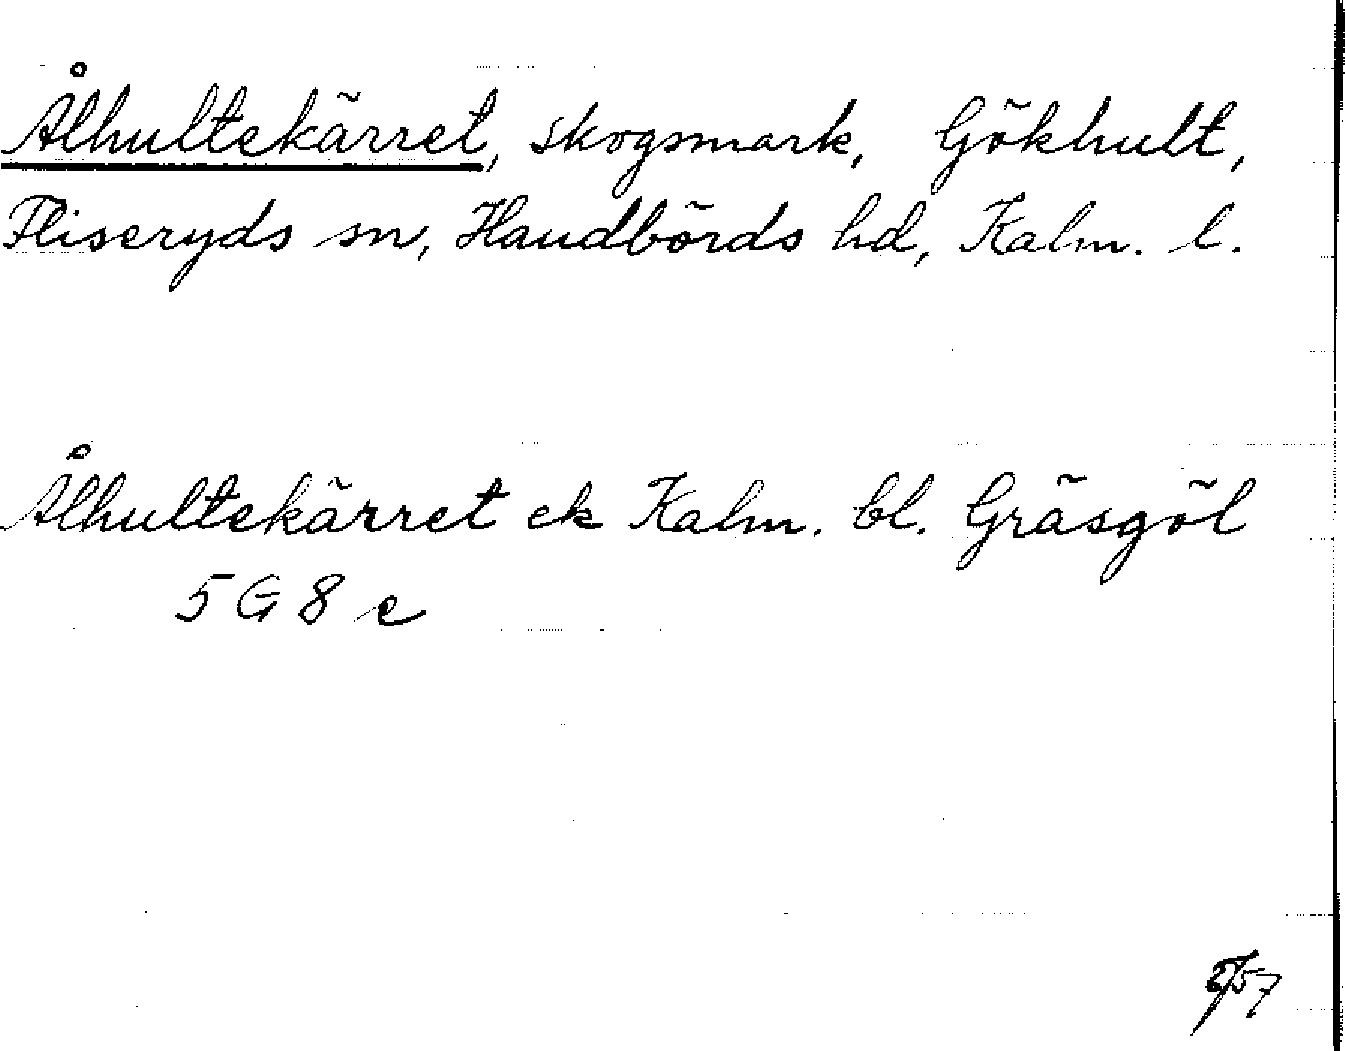 Ålhultekärret, skogsmark, Gökhult,
Fliseryds sn, Handbörds hd, Kalm. l.
Ålhultekärret ek Kalm. bl. Gräsgöl
5 G 8 e